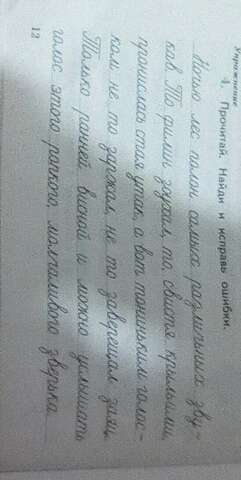 Упражнение
4. Прочитай. Найди и исправь ошибки.
Ночью лес полон самых различных зву-
ков. То филин ухнул, то, свистя крыльями,
пронислась стая уток, а вот тониньким голос-
ком не то заржал, не то заверещал заяц.
Только ранней висной и можно услышать
голос этого ропкого, молчаливого зверька.
12